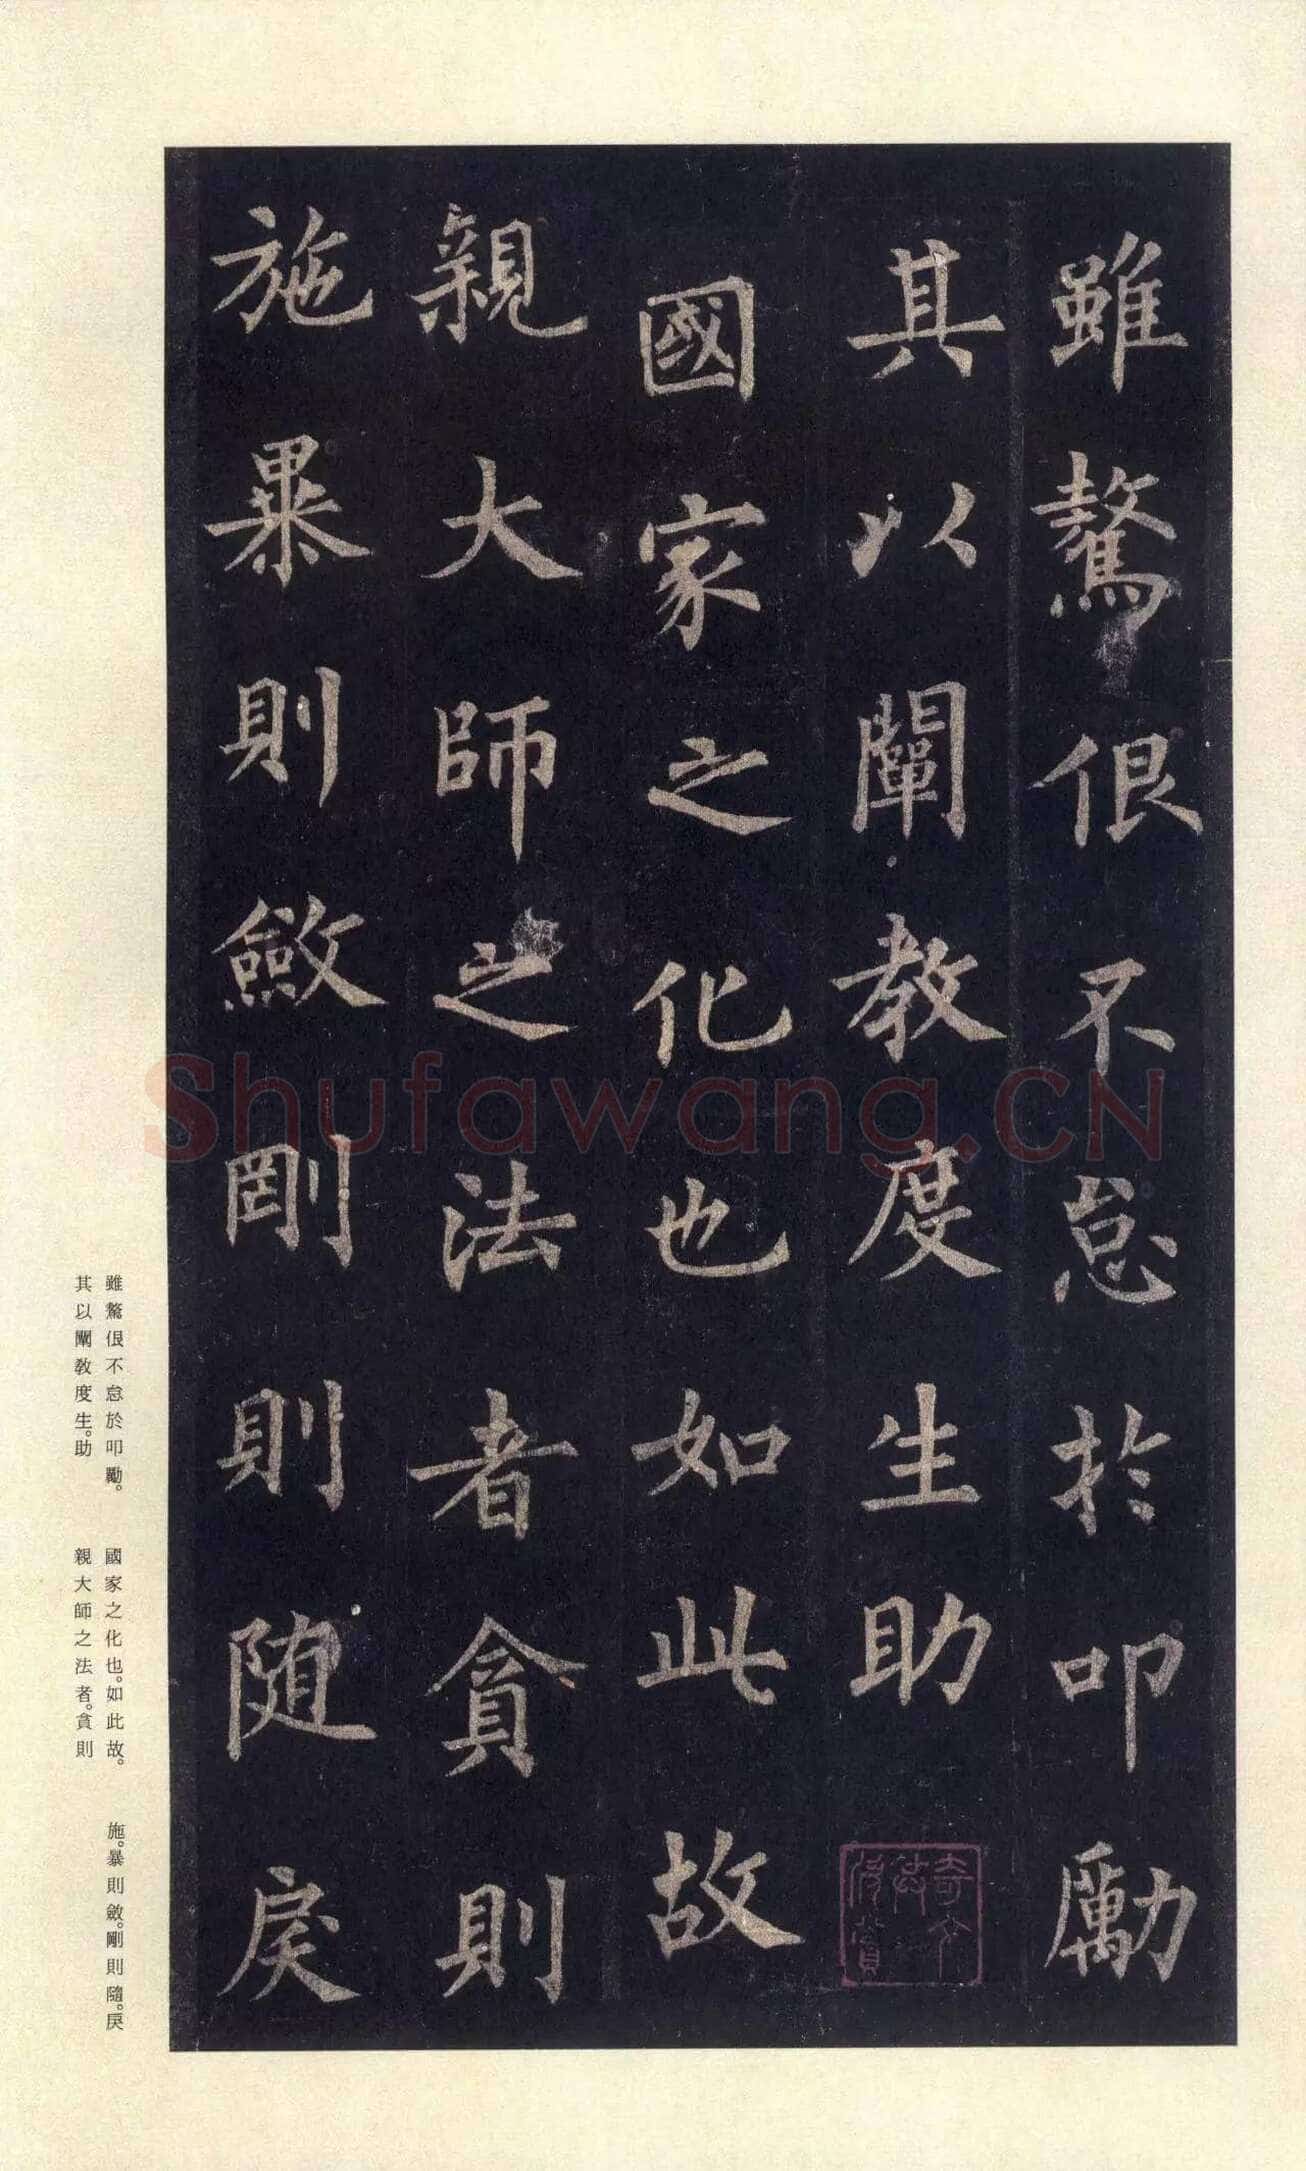 雖驁佷不怠於叩勵
其以闡教度生助
國家之化也如此故
親大師之法者貪則
施暴則斂剛則隨戾
雖驁佷不怠於叩勵。
其以闡教度生。助
國家之化也。如此故。
親大師之法者。貪則
施。暴則斂。剛則隨。戾
Shufawang.CN